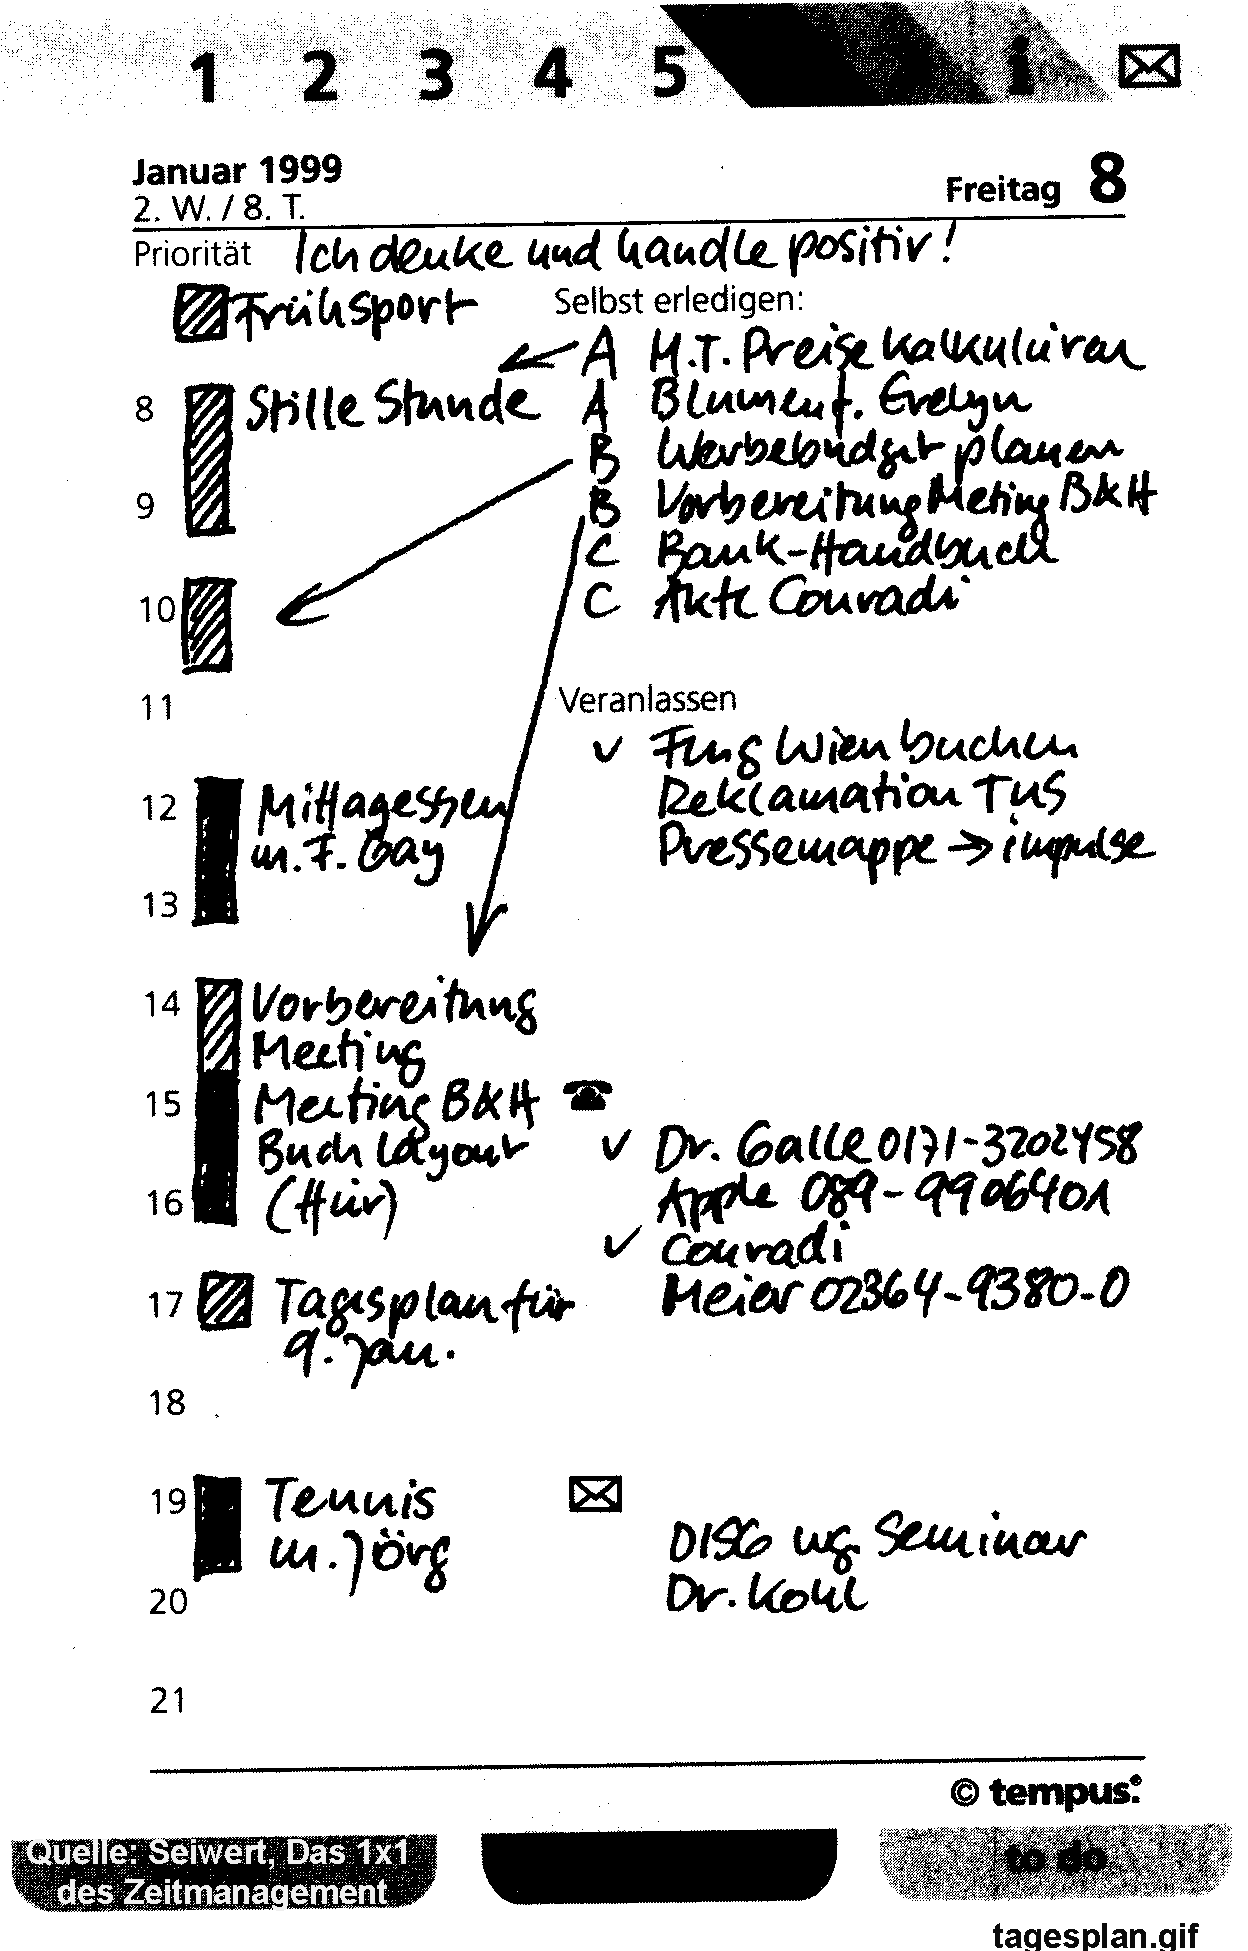 1 2 3 4 5 i
Januar 1999
2. W. / 8. T.
Freitag 8
Priorität Ich denke und handle positiv!
Frühsport
8 Stille Stunde
9
10
11
12 Mittagessen
m. F. Gay
13
14 Vorbereitung
Meeting
15 Meeting B&H
Buch Layout
16 (Hür)
17 Tagesplan für
9. Jan.
18
19 Tennis
m. Jörg
20
21
Selbst erledigen:
A M.T. Preise kalkulieren
A Blumen f. Evelyn
B Werbebudget planen
B Vorbereitung Meting B&H
C Bank-Handbuch
C Akte Conradi
Veranlassen
✓ Flug Wien buchen
Reklamation TUS
Pressemappe → impulse
✓ Dr. Galle 0171-3202458
Apple 089-9906401
✓ Conradi
Meier 02364-9380-0
DISG wg. Seminar
Dr. Kohl
© tempus.
Quelle: Seiwert, Das 1x1
des Zeitmanagement
to do
tagesplan.gif